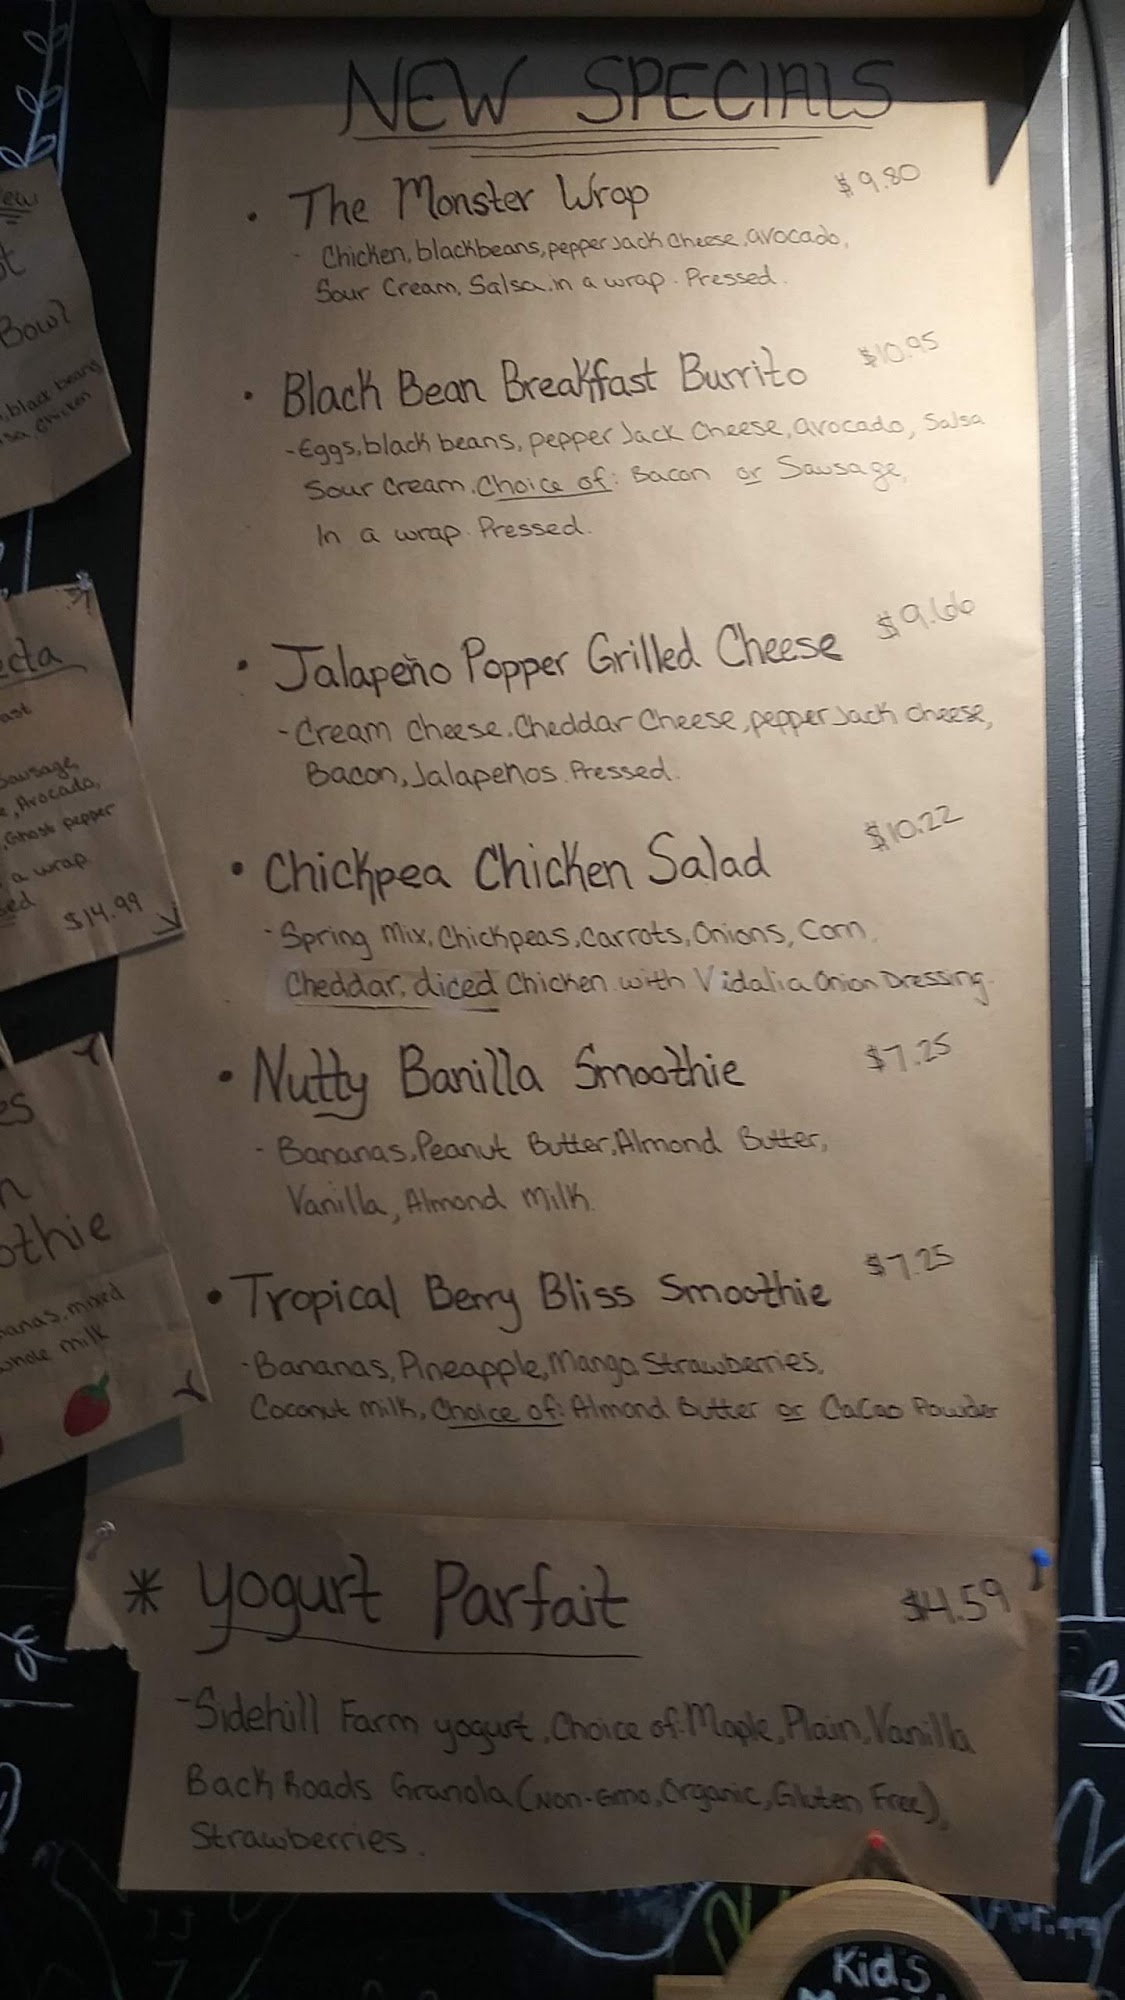 NEW SPECIALS
• The Monster Wrap $9.80
- Chicken, blackbeans, pepper Jack Cheese, avocado,
Sour Cream, Salsa, in a wrap. Pressed.
• Black Bean Breakfast Burrito $10.95
- Eggs, black beans, pepper Jack Cheese, avocado, Salsa
Sour Cream. Choice of: Bacon or Sausage,
In a wrap. Pressed.
• Jalapeño Popper Grilled Cheese $9.66
- Cream Cheese, Cheddar Cheese, pepper Jack cheese,
Bacon, Jalapenos. Pressed.
• Chickpea Chicken Salad $10.22
- Spring Mix, Chickpeas, Carrots, Onions, Corn,
Cheddar, diced Chicken with Vidalia Onion Dressing.
• Nutty Banilla Smoothie $7.25
- Bananas, Peanut Butter, Almond Butter,
Vanilla, Almond Milk.
• Tropical Berry Bliss Smoothie $7.25
- Bananas, Pineapple, Mango, Strawberries,
Coconut Milk, Choice of: Almond Butter or Cacao Powder
* Yogurt Parfait $4.59
- Sidehill Farm yogurt, Choice of: Maple, Plain, Vanilla
Back Roads Granola (Non-Gmo, Organic, Gluten Free),
Strawberries.
Bowl
, black beans
chicken
Sausage,
, Avocado,
, Ghost pepper
a wrap
$14.99
mixed
whole milk
Kid's